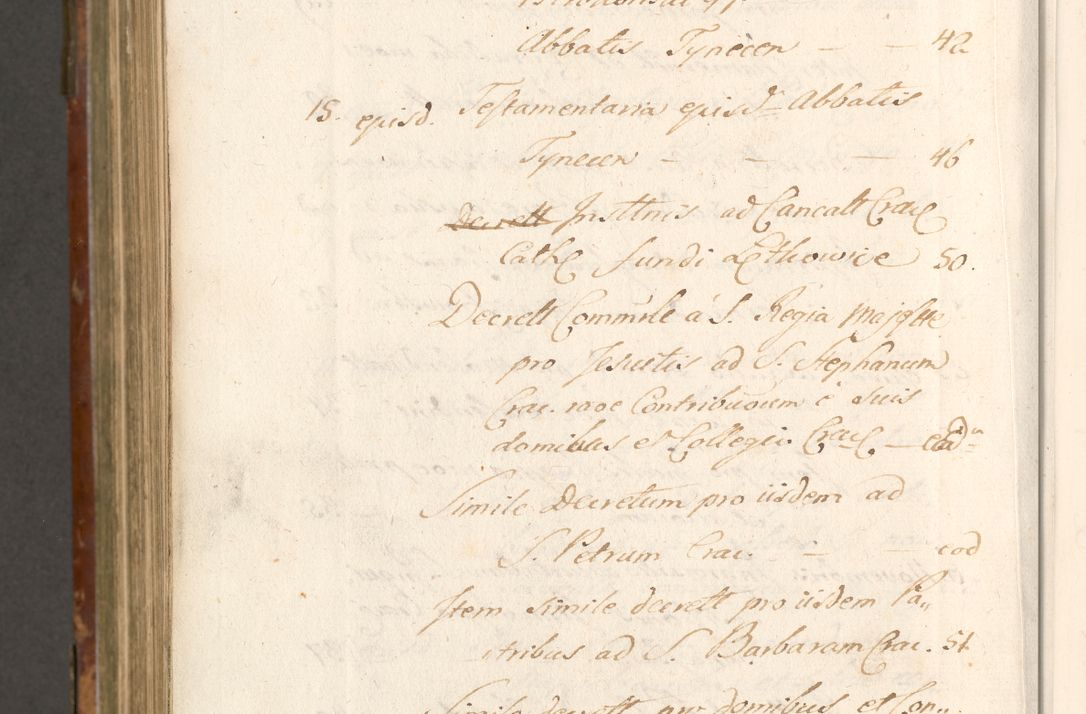 Abbatis Tynecen — — 42
15. episd. Testamentaria episd. Abbatis
Tynecen — — — 46
Decrett Insttnis ad Cancalt Crac
Cath fundi Lethowice 50.
Decrett Commile a S. Regia Majestte
pro Jesuitis ad S. Stephanum
Crac. raoe Contribuoium e suis
domibus et Collegii Crac — ead
Simile Decretum pro iisdem ad
S. Petrum Crac. — — eod
Item simile decrett pro iisdem Pa,,
tribus ad S. Barbaram Crac. 51.
Simile decrett pro domibus et Con,,